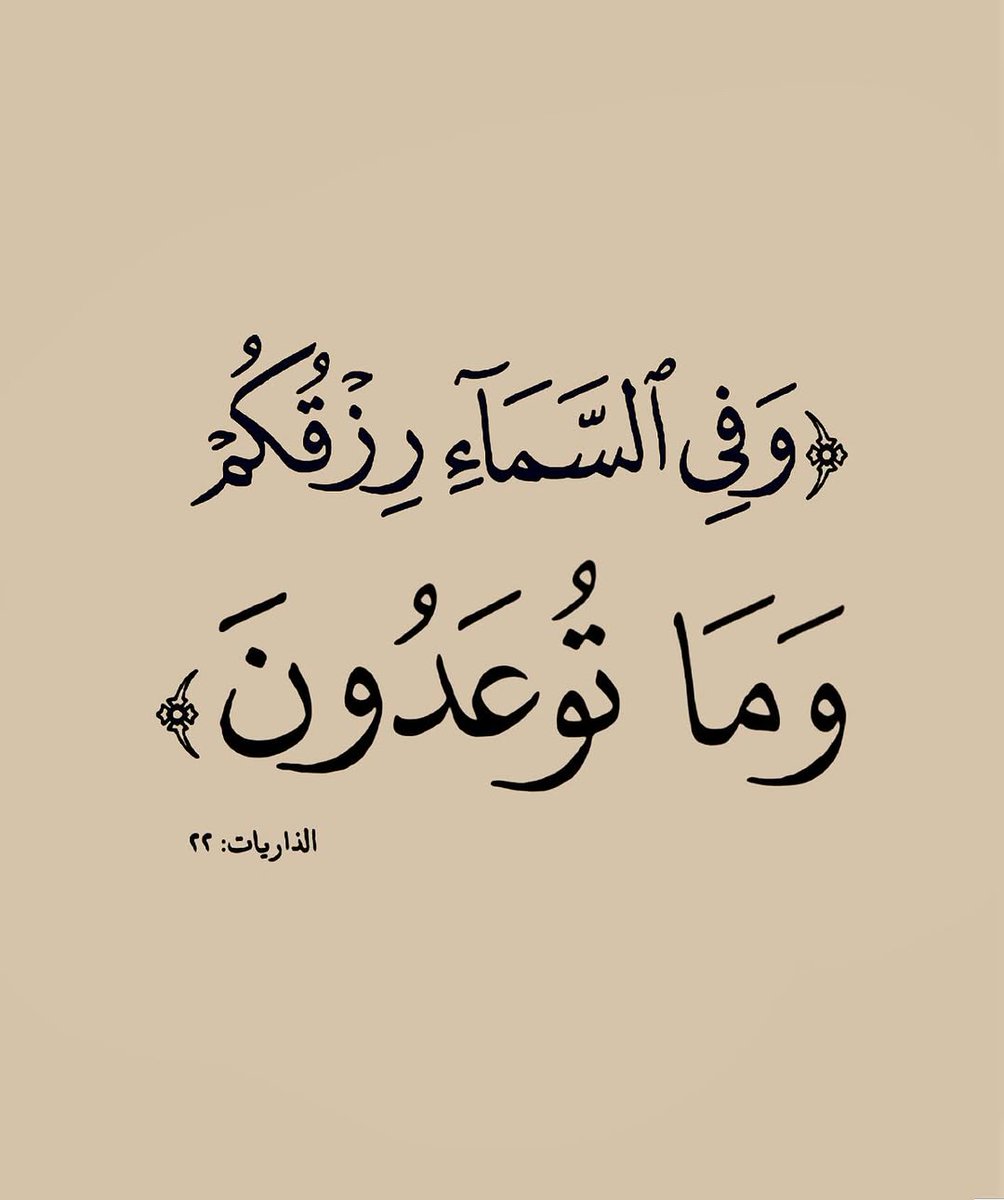 ﴿وَفِي ٱلسَّمَآءِ رِزۡقُكُمۡ
وَمَا تُوعَدُونَ﴾
الذاريات: ٢٢